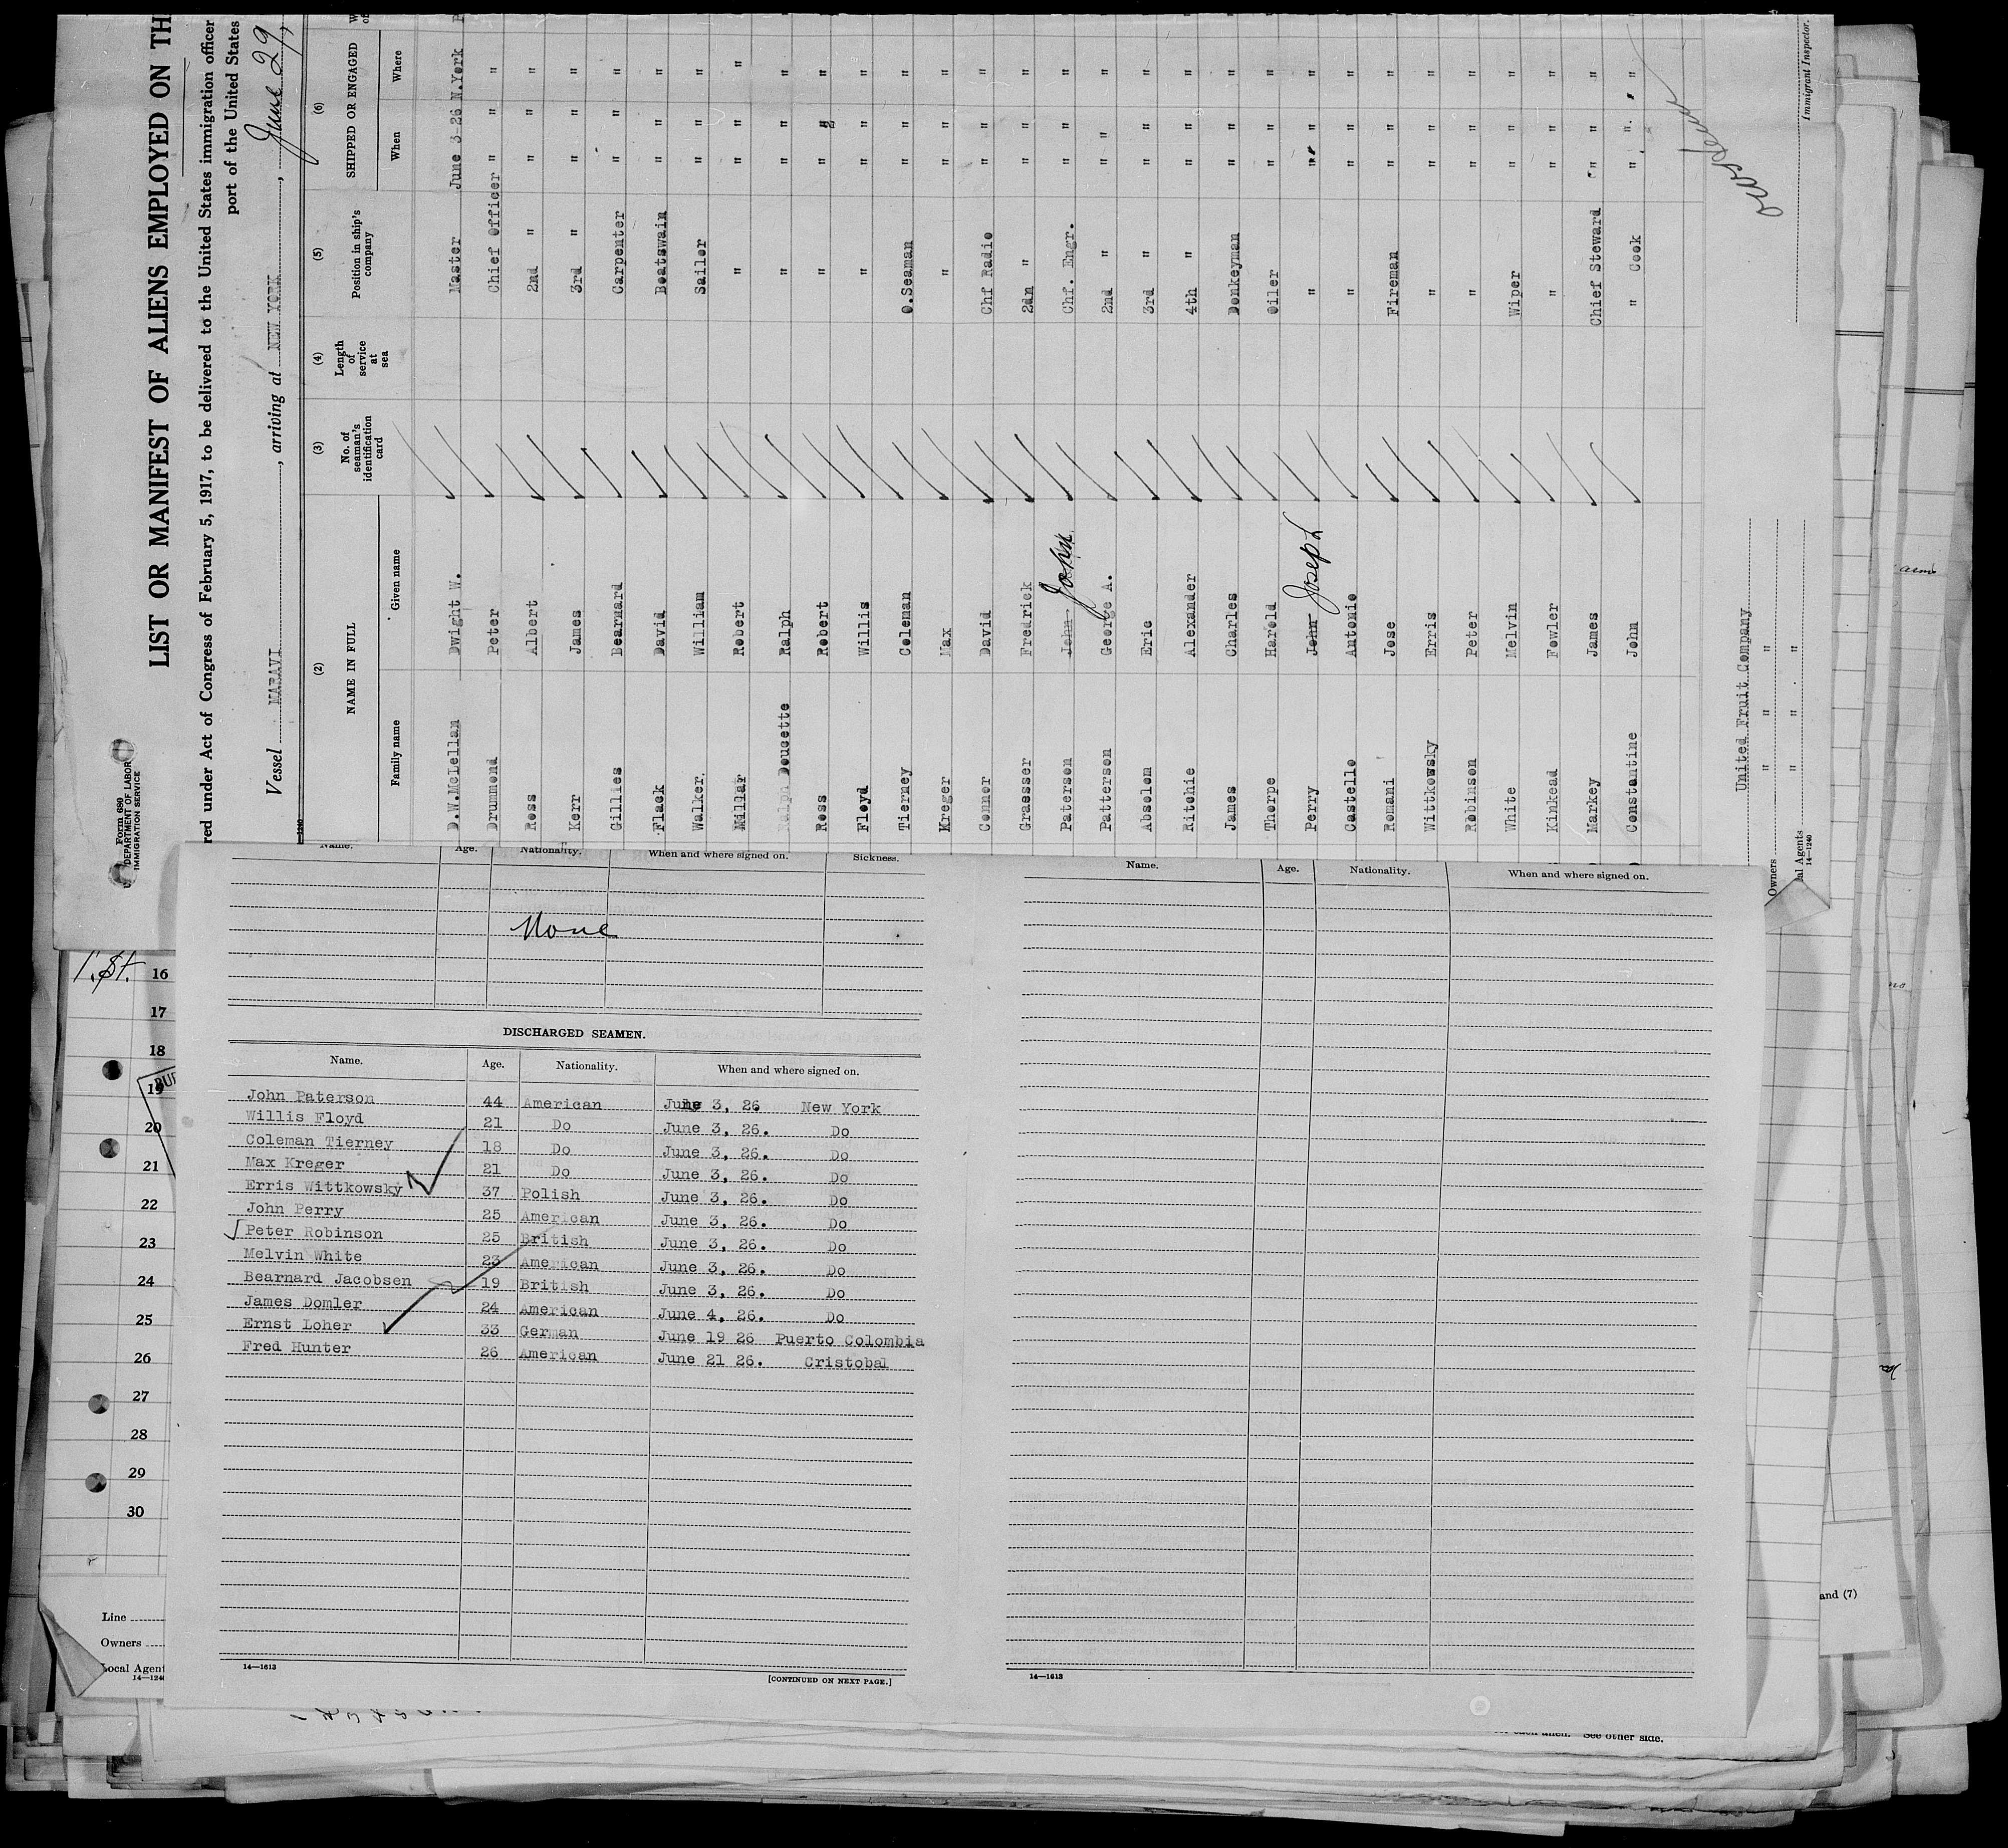 Form 680
U. S. DEPARTMENT OF LABOR
IMMIGRATION SERVICE
LIST OR MANIFEST OF ALIENS EMPLOYED ON TH
red under Act of Congress of February 5, 1917, to be delivered to the United States immigration officer
port of the United States
Vessel MARAVI, arriving at NEW YORK, June 29,
(2) (3) (4) (5) (6)
NAME IN FULL No. of seaman's identification card Length of service at sea Position in ship's company SHIPPED OR ENGAGED
Family name Given name When Where
D.W.McLellan Dwight W. Master June 3-26 N.York
Drummond Peter Chief Officer " " "
Ross Albert 2nd " " " "
Kerr James 3rd " " " "
Gillies Bearnard Carpenter " " "
Flack David Boatswain " " "
Walker. William Sailor " " "
Millar Robert " " " "
Ralph Doucette Ralph " " " "
Ross Robert " " " "
Floyd Willis " " " "
Tierney Coleman O.Seaman " " "
Kreger Max " " " "
Connor David Chf Radio " " "
Graesser Fredrick 2dn " " " "
Paterson John John Chf. Engr. " " "
Patterson George A. 2nd " " " "
Absolem Eric 3rd " " " "
Ritchie Alexander 4th " " " "
James Charles Donkeyman " " "
Thorpe Harold Oiler " " "
Perry John Joseph " " " "
Castello Antonio " " " "
Romani Jose Fireman " " "
Wittkowsky Erris " " " "
Robinson Peter " " " "
White Melvin Wiper " " "
Kinkead Fowler " " " "
Markey James Chief Steward " " "
Constantine John " Cook " " "
United Fruit Company
Owners " " "
al Agents " " "
14—1240
Immigrant Inspector.
Name. Age. Nationality. When and where signed on. Sickness.
None
DISCHARGED SEAMEN.
Name. Age. Nationality. When and where signed on.
John Paterson 44 American June 3, 26 New York
Willis Floyd 21 Do June 3, 26. Do
Coleman Tierney 18 Do June 3, 26. Do
Max Kreger 21 Do June 3, 26. Do
Erris Wittkowsky 37 Polish June 3, 26. Do
John Perry 25 American June 3, 26. Do
Peter Robinson 25 British June 3, 26. Do
Melvin White 23 American June 3, 26. Do
Bearnard Jacobsen 19 British June 3, 26. Do
James Domler 24 American June 4, 26. Do
Ernst Loher 33 German June 19 26 Puerto Colombia
Fred Hunter 26 American June 21 26. Cristobal
14—1613
[CONTINUED ON NEXT PAGE.]
Name. Age. Nationality. When and where signed on.
14—1613
1.St.
16
17
18
19
20
21
22
23
24
25
26
27
28
29
30
Line
Owners
Local Agent
14—1240
and (7)
See other side.